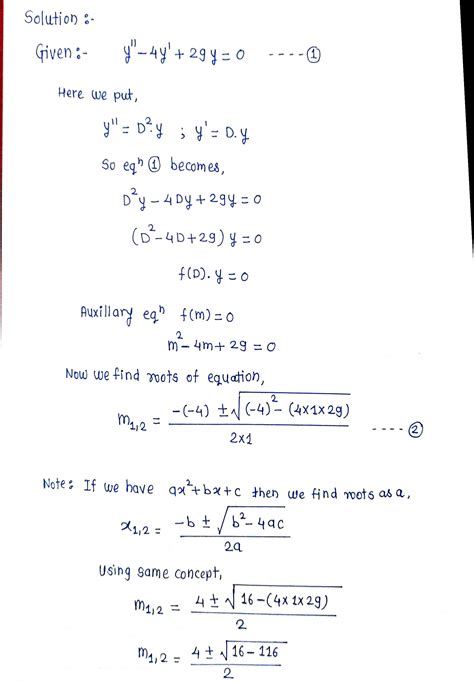 Solution :-
Given :- y'' - 4y' + 29y = 0 ---- ①
Here we put,
y'' = D².y ; y' = D.y
So eqⁿ ① becomes,
D²y - 4Dy + 29y = 0
(D² - 4D + 29) y = 0
f(D). y = 0
Auxillary eqⁿ f(m) = 0
m² - 4m + 29 = 0
Now we find roots of equation,
m₁,₂ = (-(-4) ± √((-4)² - (4×1×29))) / (2×1) ---- ②
Note: If we have ax² + bx + c then we find roots as a,
x₁,₂ = (-b ± √(b² - 4ac)) / (2a)
Using same concept,
m₁,₂ = (4 ± √(16 - (4×1×29))) / 2
m₁,₂ = (4 ± √(16 - 116)) / 2